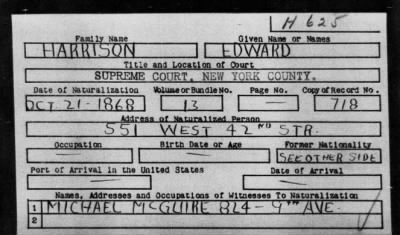 H 625
Family Name Given Name or Names
HARRISON EDWARD
Title and Location of Court
SUPREME COURT, NEW YORK COUNTY.
Date of Naturalization Volume or Bundle No. Page No. Copy of Record No.
OCT. 21-1868 13 — 718
Address of Naturalized Person
551 WEST 42ND STR.
Occupation Birth Date or Age Former Nationality
— — SEE OTHER SIDE
Port of Arrival in the United States Date of Arrival
— —
Names, Addresses and Occupations of Witnesses To Naturalization
1 MICHAEL McGUIRE 824-9TH AVE.
2